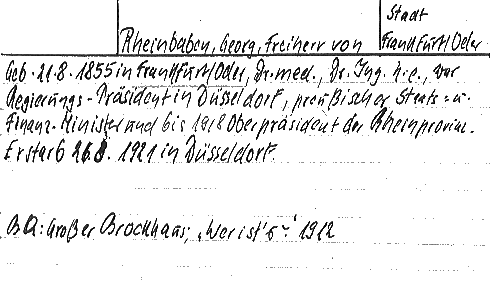 Stadt
Rheinbaben, Georg, Freiherr von
Frankfurt/Oder
Geb. 21.8.1855 in Frankfurt/Oder, Dr. med., Dr. Ing. h.c., war
Regierungs-Präsident in Düsseldorf, preußischer Staats- u.
Finanz-Minister und bis 1918 Oberpräsident der Rheinprovinz.
Er starb 26.8. 1921 in Düsseldorf.
BQ: Großer Brockhaus; „Wer ist's" 1912